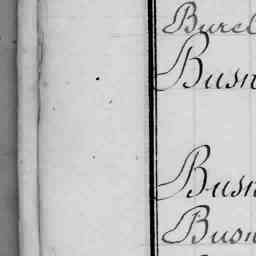 Burel
Busn
Busn
Buon